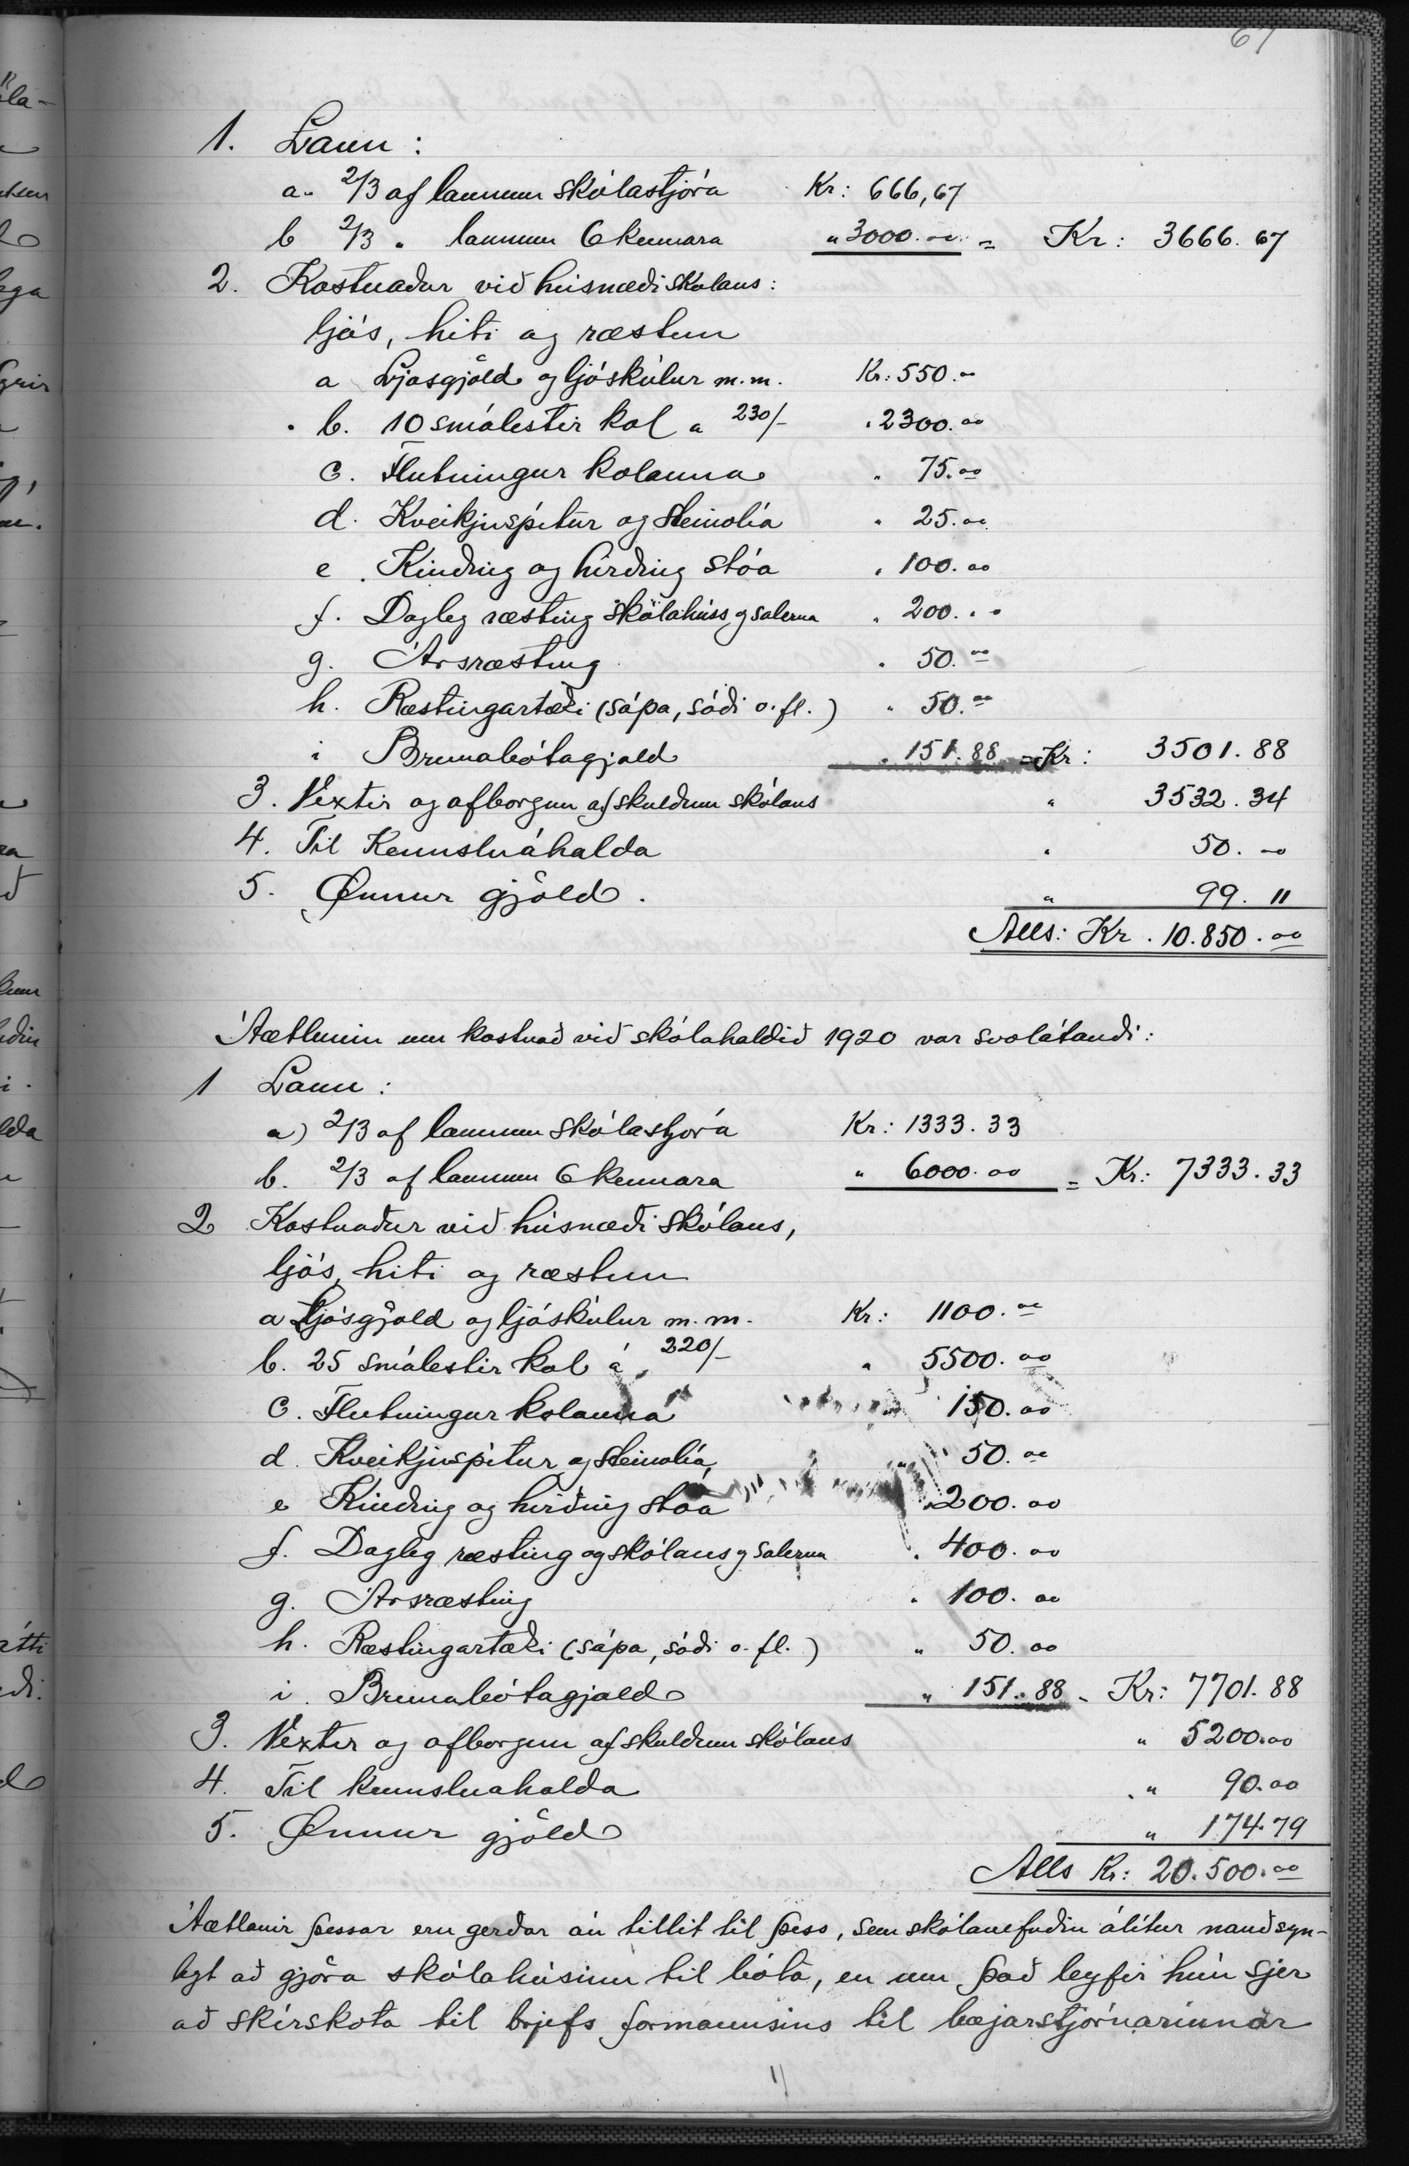 67
1. Laun:
a. 2/3 af launum skólastjóra Kr: 666,67
b 2/3 " launum 6 kennara " 3000.00 = Kr: 3666.67
2. Kostnaður við húsnæði skolans:
ljós, hiti og ræstun
a Ljósgjöld og ljóskúlur m.m. Kr: 550.00
b. 10 smálestir kol a 230/- " 2300.00
c. Flutningur kolanna " 75.00
d. Kveikjuspítur og steinolía " 25.00
e. Kinding og hirðing stóa " 100.00
f. Dagleg ræsting skólahúss og salerna " 200.00
g. Ársræsting " 50.00
h. Ræstingartæki (sápa, sódi o.fl.) " 50.00
i Brunabótagjald " 151.88 = Kr: 3501.88
3. Vextir og afborgun af skuldum skólans " 3532.34
4. Til Kennsluáhalda " 50.00
5. Önnur gjöld. " 99.11
Alls: Kr. 10.850.00
Áætlunin um kostnað við skólahaldið 1920 var svolátandi:
1 Laun:
a) 2/3 af launum skólastjóra Kr: 1333.33
b. 2/3 af launum 6 kennara " 6000.00 = Kr: 7333.33
2 Kostnaður við húsnæði skólans,
ljós, hiti og ræstun
a Ljósgjöld og ljóskúlur m.m. Kr: 1100.00
b. 25 smálestir kol á 220/- " 5500.00
c. Flutningur kolanna 150.00
d. Kveikjuspítur og steinolía " 50.00
e Kinding og hirðing stóa " 200.00
f. Dagleg ræsting og skólans og salerna " 400.00
g. Ársræsting " 100.00
h. Ræstingartæki (sápa, sódi o.fl.) " 50.00
i. Brunabótagjald " 151.88 - Kr: 7701.88
3. Vextir og afborgun af skuldum skólans " 5200.00
4. Til kennsluahalda " 90.00
5. Önnur gjöld " 174.79
Alls Kr: 20.500.00
Áætlanir þessar eru gerðar án tillit til þess, sem skólanefndin álítur nauðsyn-
legt að gjöra skólahúsinu til bóta, en um það leyfir hún sjer
að skírskota til brjefs formannsins til bæjarstjórnarinnar